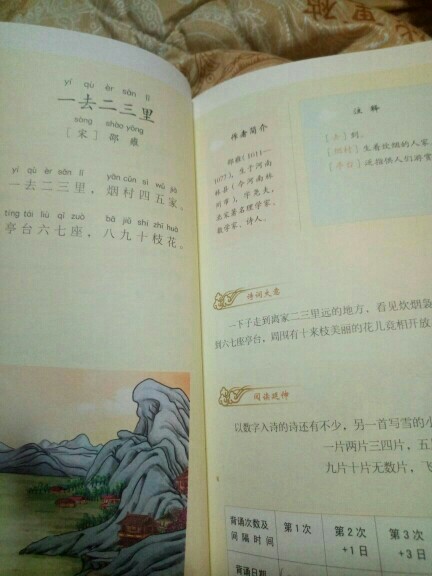 yí qù èr sān lǐ
一去二三里
sòng shào yōng
［宋］邵 雍
yí qù èr sān lǐ yān cūn sì wǔ jiā
一去二三里，烟村四五家。
tíng tái liù qī zuò bā jiǔ shí zhī huā
亭台六七座，八九十枝花。
作者简介
邵雍（1011—
1077），生于河南
林县（今河南林
州市），字尧夫，
北宋著名理学家、
数学家、诗人。
注 释
［去］到。
［烟村］生着炊烟的人家
［亭台］泛指供人们游赏
诗词大意
一下子走到离家二三里远的地方，看见炊烟袅
到六七座亭台，周围有十来枝美丽的花儿竞相开放
阅读延伸
以数字入诗的诗还有不少，另一首写雪的小
一片两片三四片，五
九片十片无数片，飞
背诵次数及
间隔时间
第1次
第2次
+1日
第3次
+3日
背诵日期